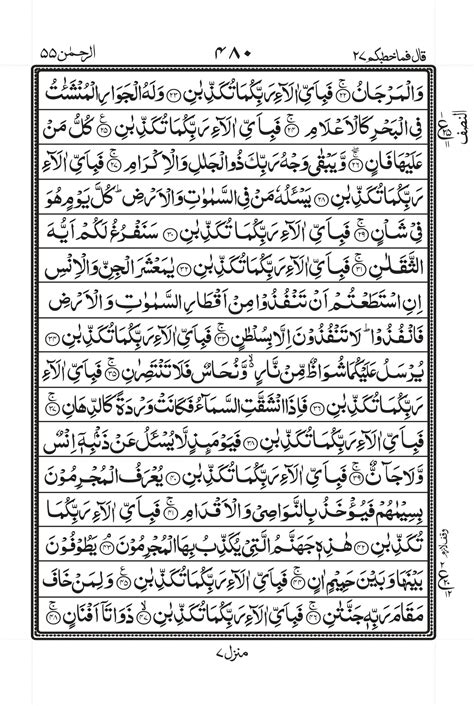 قال فماخطبکم ۲۷ ۴۸۰ الرحمٰن ۵۵
وَالۡمَرۡجَانُ ﴿۲۲﴾ فَبِاَىِّ اٰلَاۤءِ رَبِّكُمَا تُكَذِّبٰنِ ﴿۲۳﴾ وَلَهُ الۡجَوَارِ الۡمُنۡشَئٰتُ
فِى الۡبَحۡرِ كَالۡاَعۡلَامِ ﴿۲۴﴾ فَبِاَىِّ اٰلَاۤءِ رَبِّكُمَا تُكَذِّبٰنِ ﴿۲۵﴾ كُلُّ مَنۡ
عَلَيۡهَا فَانٍ ﴿۲۶﴾ وَّيَبۡقٰى وَجۡهُ رَبِّكَ ذُو الۡجَلٰلِ وَالۡاِكۡرَامِ ﴿۲۷﴾ فَبِاَىِّ اٰلَاۤءِ
رَبِّكُمَا تُكَذِّبٰنِ ﴿۲۸﴾ يَسۡـَٔلُهٗ مَنۡ فِى السَّمٰوٰتِ وَالۡاَرۡضِ ؕ كُلَّ يَوۡمٍ هُوَ
فِىۡ شَاۡنٍ ﴿۲۹﴾ فَبِاَىِّ اٰلَاۤءِ رَبِّكُمَا تُكَذِّبٰنِ ﴿۳۰﴾ سَنَفۡرُغُ لَكُمۡ اَيُّهَ
الثَّقَلٰنِ ﴿۳۱﴾ فَبِاَىِّ اٰلَاۤءِ رَبِّكُمَا تُكَذِّبٰنِ ﴿۳۲﴾ يٰمَعۡشَرَ الۡجِنِّ وَالۡاِنۡسِ
اِنِ اسۡتَطَعۡتُمۡ اَنۡ تَنۡفُذُوۡا مِنۡ اَقۡطَارِ السَّمٰوٰتِ وَالۡاَرۡضِ
فَانۡفُذُوۡا ؕ لَا تَنۡفُذُوۡنَ اِلَّا بِسُلۡطٰنٍ ﴿۳۳﴾ فَبِاَىِّ اٰلَاۤءِ رَبِّكُمَا تُكَذِّبٰنِ ﴿۳۴﴾
يُرۡسَلُ عَلَيۡكُمَا شُوَاظٌ مِّنۡ نَّارٍ ۙ وَّنُحَاسٌ فَلَا تَنۡتَصِرٰنِ ﴿۳۵﴾ فَبِاَىِّ اٰلَاۤءِ
رَبِّكُمَا تُكَذِّبٰنِ ﴿۳۶﴾ فَاِذَا انۡشَقَّتِ السَّمَآءُ فَكَانَتۡ وَرۡدَةً كَالدِّهَانِ ﴿۳۷﴾
فَبِاَىِّ اٰلَاۤءِ رَبِّكُمَا تُكَذِّبٰنِ ﴿۳۸﴾ فَيَوۡمَئِذٍ لَّا يُسۡـَٔلُ عَنۡ ذَنۡۢبِهٖۤ اِنۡسٌ
وَّلَا جَآنٌّ ﴿۳۹﴾ فَبِاَىِّ اٰلَاۤءِ رَبِّكُمَا تُكَذِّبٰنِ ﴿۴۰﴾ يُعۡرَفُ الۡمُجۡرِمُوۡنَ
بِسِيۡمٰهُمۡ فَيُؤۡخَذُ بِالنَّوَاصِىۡ وَالۡاَقۡدَامِ ﴿۴۱﴾ فَبِاَىِّ اٰلَاۤءِ رَبِّكُمَا
تُكَذِّبٰنِ ﴿۴۲﴾ هٰذِهٖ جَهَنَّمُ الَّتِىۡ يُكَذِّبُ بِهَا الۡمُجۡرِمُوۡنَ ﴿۴۳﴾ يَطُوۡفُوۡنَ
بَيۡنَهَا وَبَيۡنَ حَمِيۡمٍ اٰنٍ ﴿۴۴﴾ فَبِاَىِّ اٰلَاۤءِ رَبِّكُمَا تُكَذِّبٰنِ ﴿۴۵﴾ وَلِمَنۡ خَافَ
مَقَامَ رَبِّهٖ جَنَّتٰنِ ﴿۴۶﴾ فَبِاَىِّ اٰلَاۤءِ رَبِّكُمَا تُكَذِّبٰنِ ﴿۴۷﴾ ذَوَاتَاۤ اَفۡنَانٍ ﴿۴۸﴾
النصف
منزل ۷